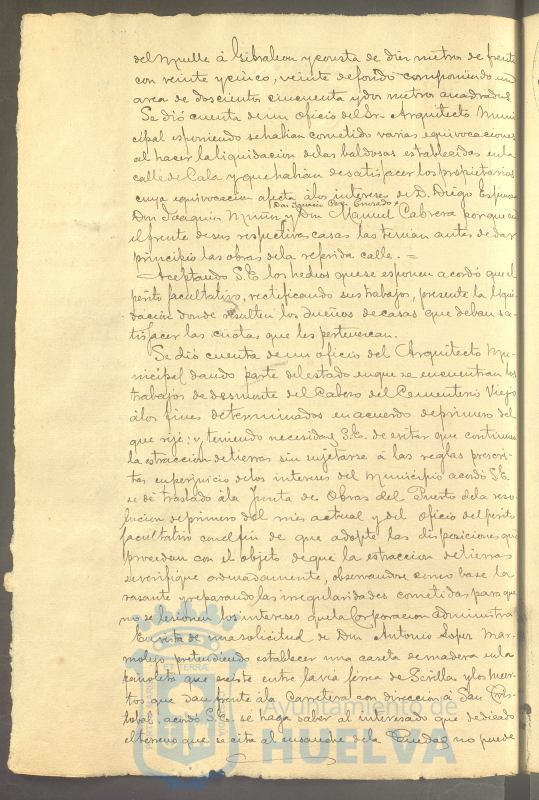 del Muelle á Gibraleon y consta de diez metros de frente
con veinte y cinco, veinte de fondo componiendo un
area de doscientos cincuenta y dos metros cuadrados.
Se dió cuenta de un oficio del Sr. Arquitecto Muni
cipal esponiendo se habian cometido varias equivocaciones
al hacer la liquidacion de las baldosas establecidas en la
calle de Cala y que habian de satisfacer los propietarios
cuya equivocacion afecta á los intereses de D. Diego
Don Joaquin Muñoz y Don Manuel Cabrera porque en
el frente de sus respectivas casas las tenian antes de dar
principio las obras de la referida calle. =
Aceptando S.E. los hechos que se esponen acordó que el
périto facultativo, rectificando sus trabajos, presente la liqui
dacion donde resulten los dueños de casas que deban sa
tisfacer las cuotas que les pertenezcan.
Se dió cuenta de un oficio del Arquitecto Mu-
nicipal dando parte del estado en que se encuentran los
trabajos de desmonte del Cabezo del Cementerio Viejo
á los fines determinados en acuerdo de primero del
que rije: y teniendo necesidad S.E. de evitar que continue
la estraccion de tierras sin sujetarse á las reglas prescri-
tas en perjuicio de los intereses del Municipio acordó S.E.
se dé traslado á la Junta de Obras del Puerto de la reso
lucion de primero del mes actual y del oficio del périto
facultativo con el fin de que adopte las disposiciones que
procedan con el objeto de que la estraccion de tierras
se verifique ordenadamente, observandose como base la
rasante y reparando las irregularidades cometidas para que
no se lesionen los intereses que la Corporacion administra
En vista de una solicitud de Don Antonio Lopez Mar-
molejo pretendiendo establecer una caseta de madera en la
que existe entre la via férrea de Sevilla y los huer
tos que dan frente á la Carretera con direccion á San Cris-
tobal, acordó S.E. se haga saber al interesado que dedicado
el terreno que se cita al ensanche de la Ciudad no puede
Ayuntamiento de
HUELVA